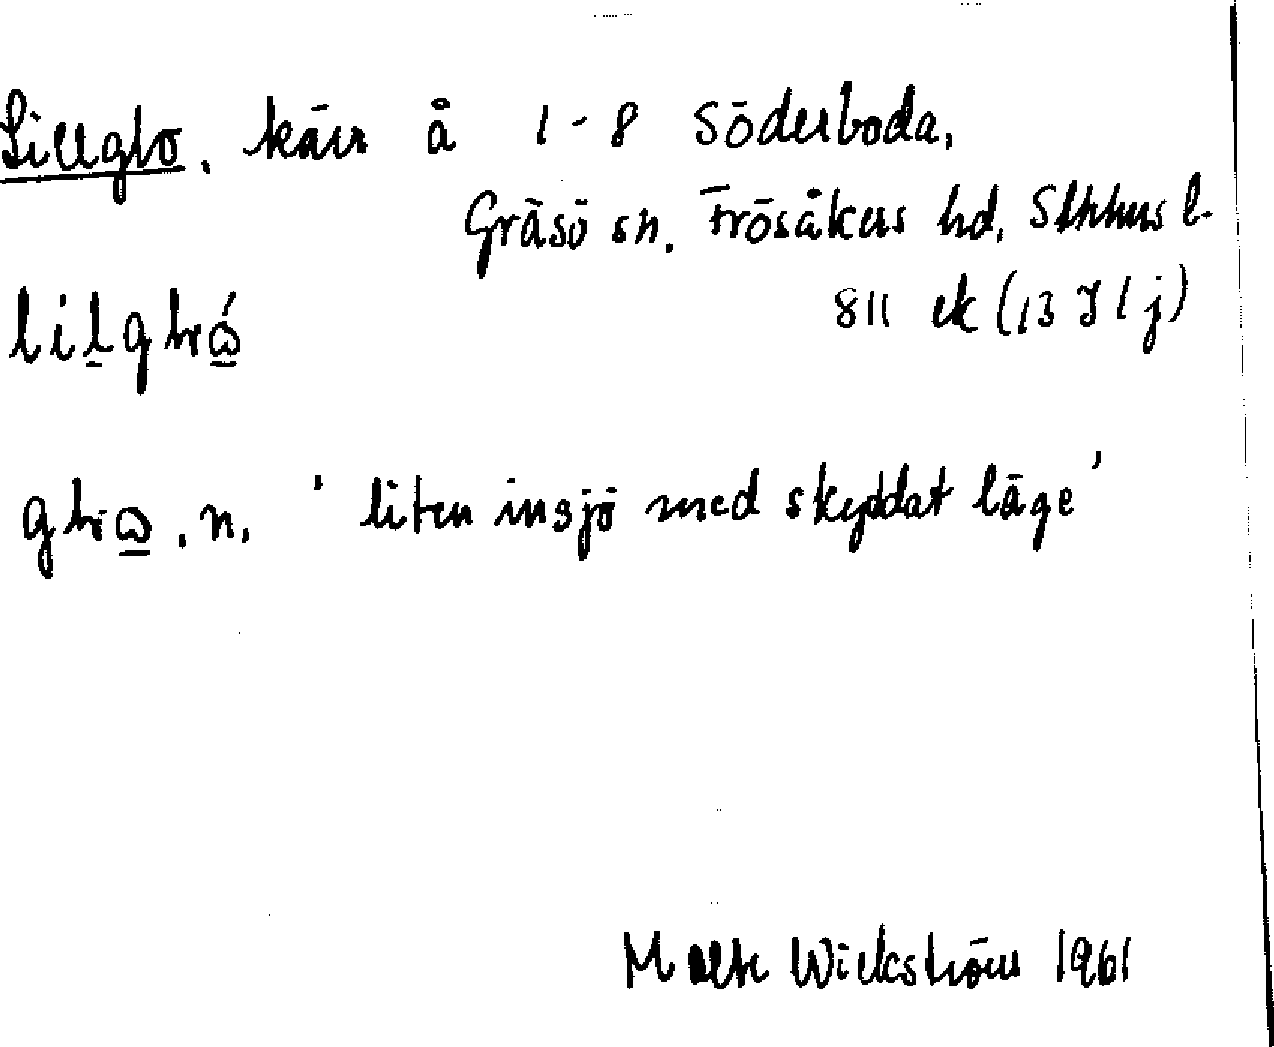 Lillglo, kärr å 1-8 Söderboda,
Gräsö sn. Frösåkers hd, Sthlms l.
811 ek (13 I 1 j)
lilglo
glo, n. 'liten insjö med skyddat läge'
Malte Wickström 1961